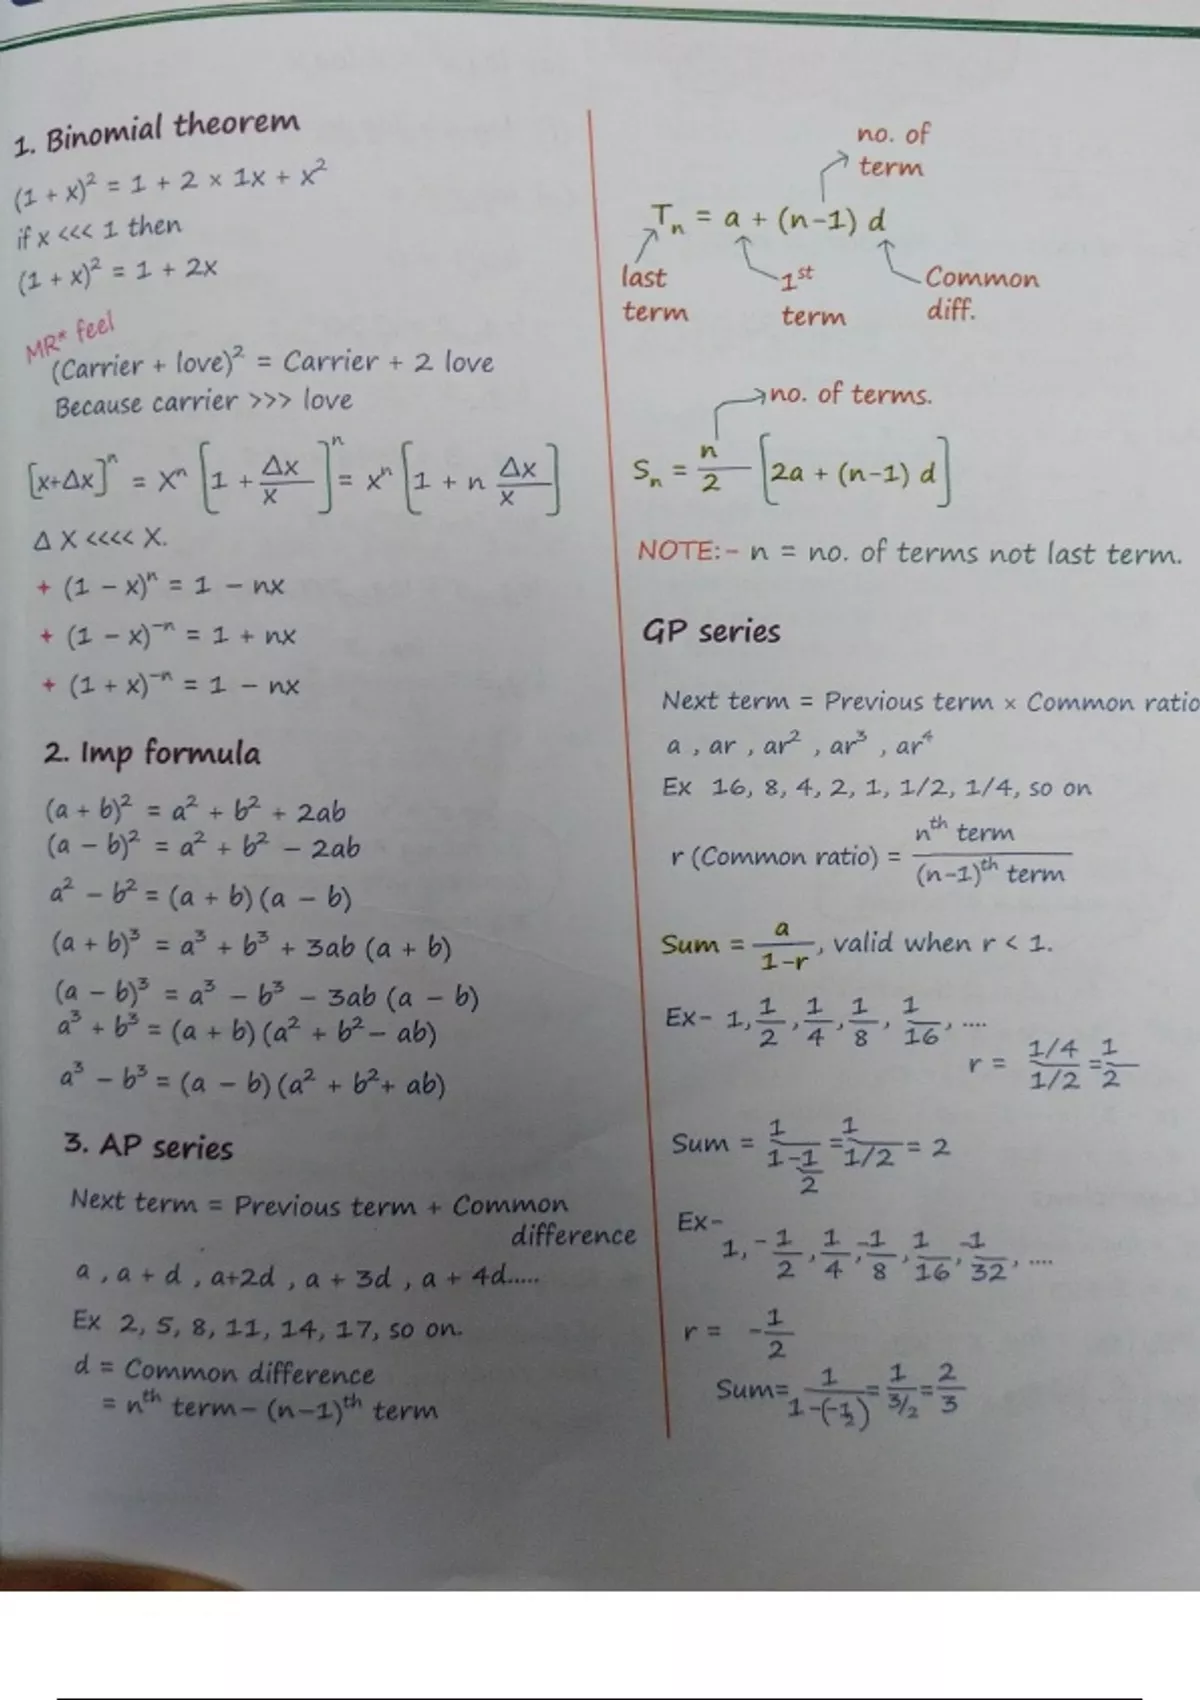 1. Binomial theorem
(1 + x)² = 1 + 2 × 1x + x²
if x <<< 1 then
(1 + x)² = 1 + 2x
MR* feel
(Carrier + love)² = Carrier + 2 love
Because carrier >>> love
[x+Δx]ⁿ = xⁿ [1 + Δx/x]ⁿ = xⁿ [1 + n Δx/x]
Δ X <<<< X.
+ (1 − x)ⁿ = 1 − nx
+ (1 − x)⁻ⁿ = 1 + nx
+ (1 + x)⁻ⁿ = 1 − nx
2. Imp formula
(a + b)² = a² + b² + 2ab
(a − b)² = a² + b² − 2ab
a² − b² = (a + b) (a − b)
(a + b)³ = a³ + b³ + 3ab (a + b)
(a − b)³ = a³ − b³ − 3ab (a − b)
a³ + b³ = (a + b) (a² + b² − ab)
a³ − b³ = (a − b) (a² + b² + ab)
3. AP series
Next term = Previous term + Common
difference
a , a + d , a+2d , a + 3d , a + 4d......
Ex 2, 5, 8, 11, 14, 17, so on.
d = Common difference
= nᵗʰ term − (n−1)ᵗʰ term
no. of
term
Tₙ = a + (n−1) d
last 1ˢᵗ Common
term term diff.
no. of terms.
Sₙ = n/2 [2a + (n−1) d]
NOTE:- n = no. of terms not last term.
GP series
Next term = Previous term × Common ratio
a , ar , ar² , ar³ , ar⁴
Ex 16, 8, 4, 2, 1, 1/2, 1/4, so on
r (Common ratio) = nᵗʰ term / (n−1)ᵗʰ term
Sum = a/1−r , valid when r < 1.
Ex- 1, 1/2, 1/4, 1/8, 1/16, ....
r = 1/4 / 1/2 = 1/2
Sum = 1/(1−1/2) = 1/1/2 = 2
Ex-
1, −1/2, 1/4, −1/8, 1/16, −1/32, ....
r = −1/2
Sum= 1/(1−(−1/2)) = 1/3/2 = 2/3